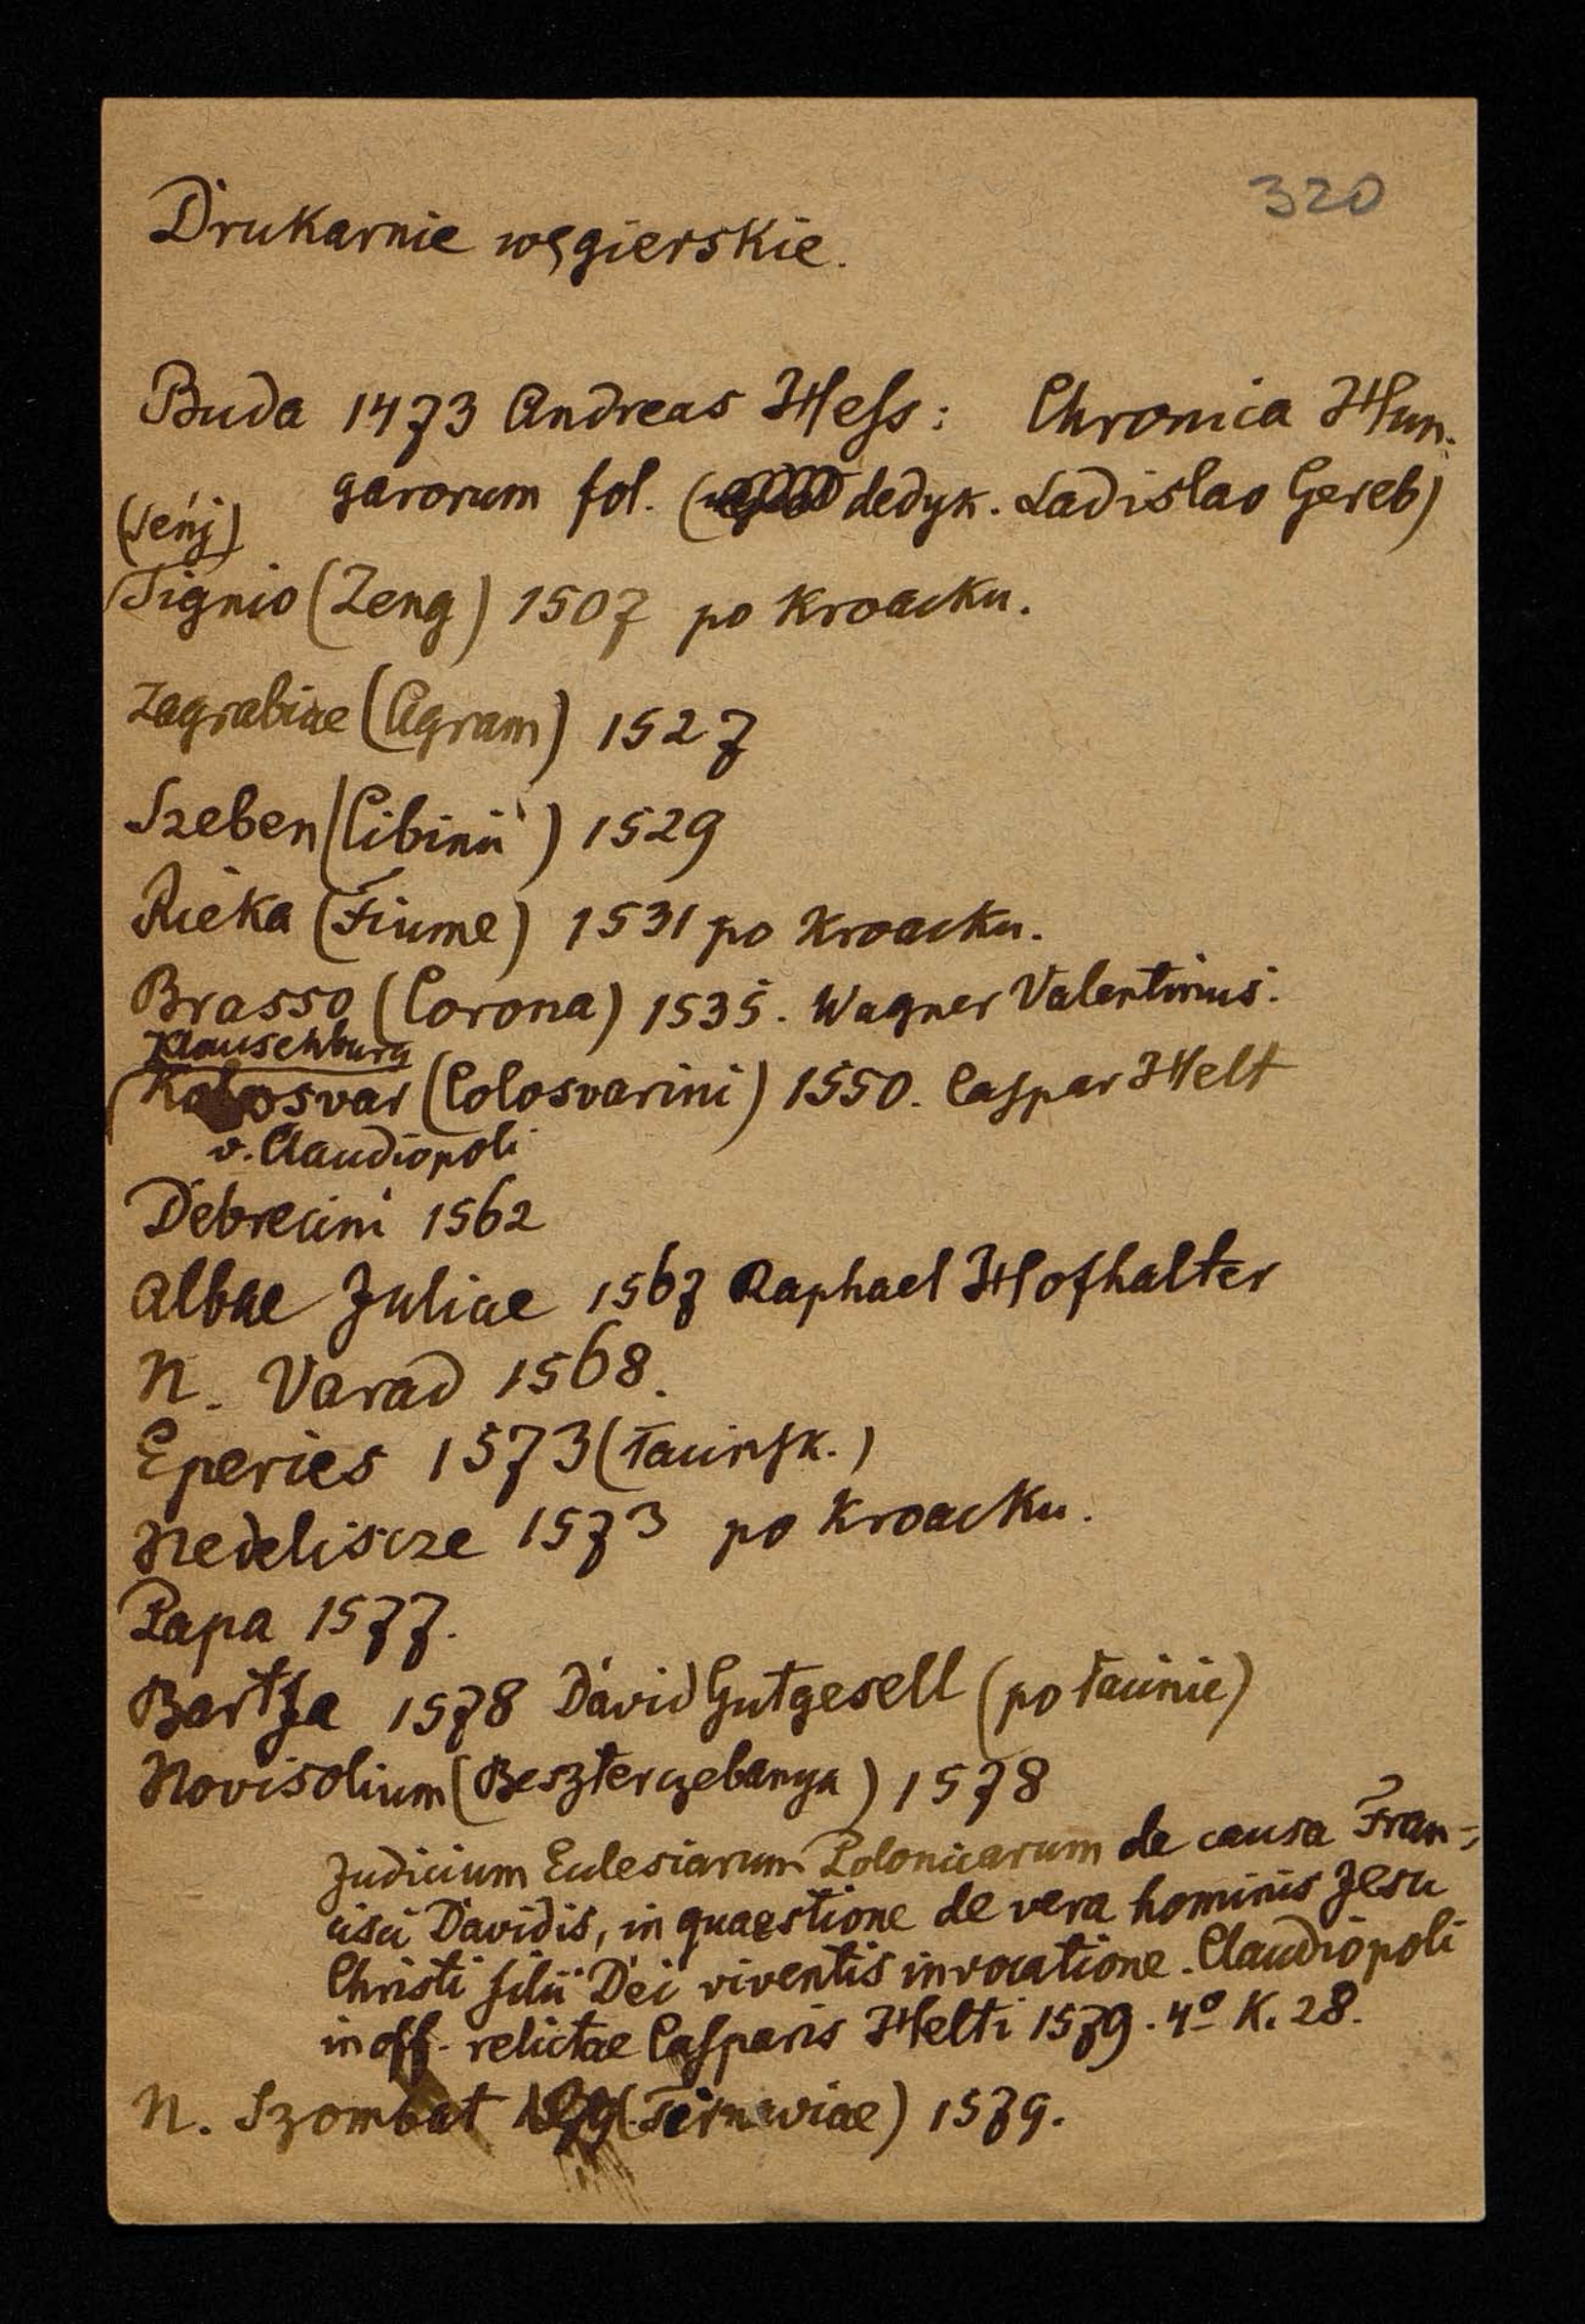 320
Drukarnie węgierskie.
Buda 1473 Andreas Hess: Chronica Hun-
garorum fol. (dedyk. Ladislao Gereb)
(Senj)
Signio (Zeng) 1507 po kroacku.
Zagrabiae (Agram) 1527
Szeben (Cibinii) 1529
Rieka (Fiume) 1531 po kroacku.
Brasso (Corona) 1535. Wagner Valentinus.
Klausenburg
Kolosvar (Colosvarini) 1550. Caspar Helt
v. Claudiopoli
Debrecini 1562
Albae Juliae 1567 Raphael Hofhalter
N. Varad 1568.
Eperies 1573 (łacińsk.)
Nedeliscze 1573 po kroacku.
Papa 1577.
Bartfa 1578 David Gutgesell (po łacinie)
Novisolium (Beszterczebanya) 1578
Judicium Eclesiarum Polonicarum de causa Fran-
cisci Davidis, in quaestione de vera hominis Jesu
Christi filii Dei viventis invocatione. Claudiopoli
in off. relictae Casparis Helti 1579. 4º K. 28.
N. Szombat (Tirnaviae) 1579.